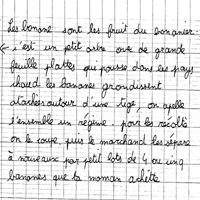 Les banane sont les fruit du bananier.
c'est un petit arbre avec de grande
feuille plattes qui pousse dans les pays
chaud les bananes grandissent
atachées autour d'une tige, on apelle
l'ensemble un régime. pour les récolté
on le coupe, puis le marchand les sépare
à nouveaux par petit lots de 4 ou cinq
bananes que ta maman achète